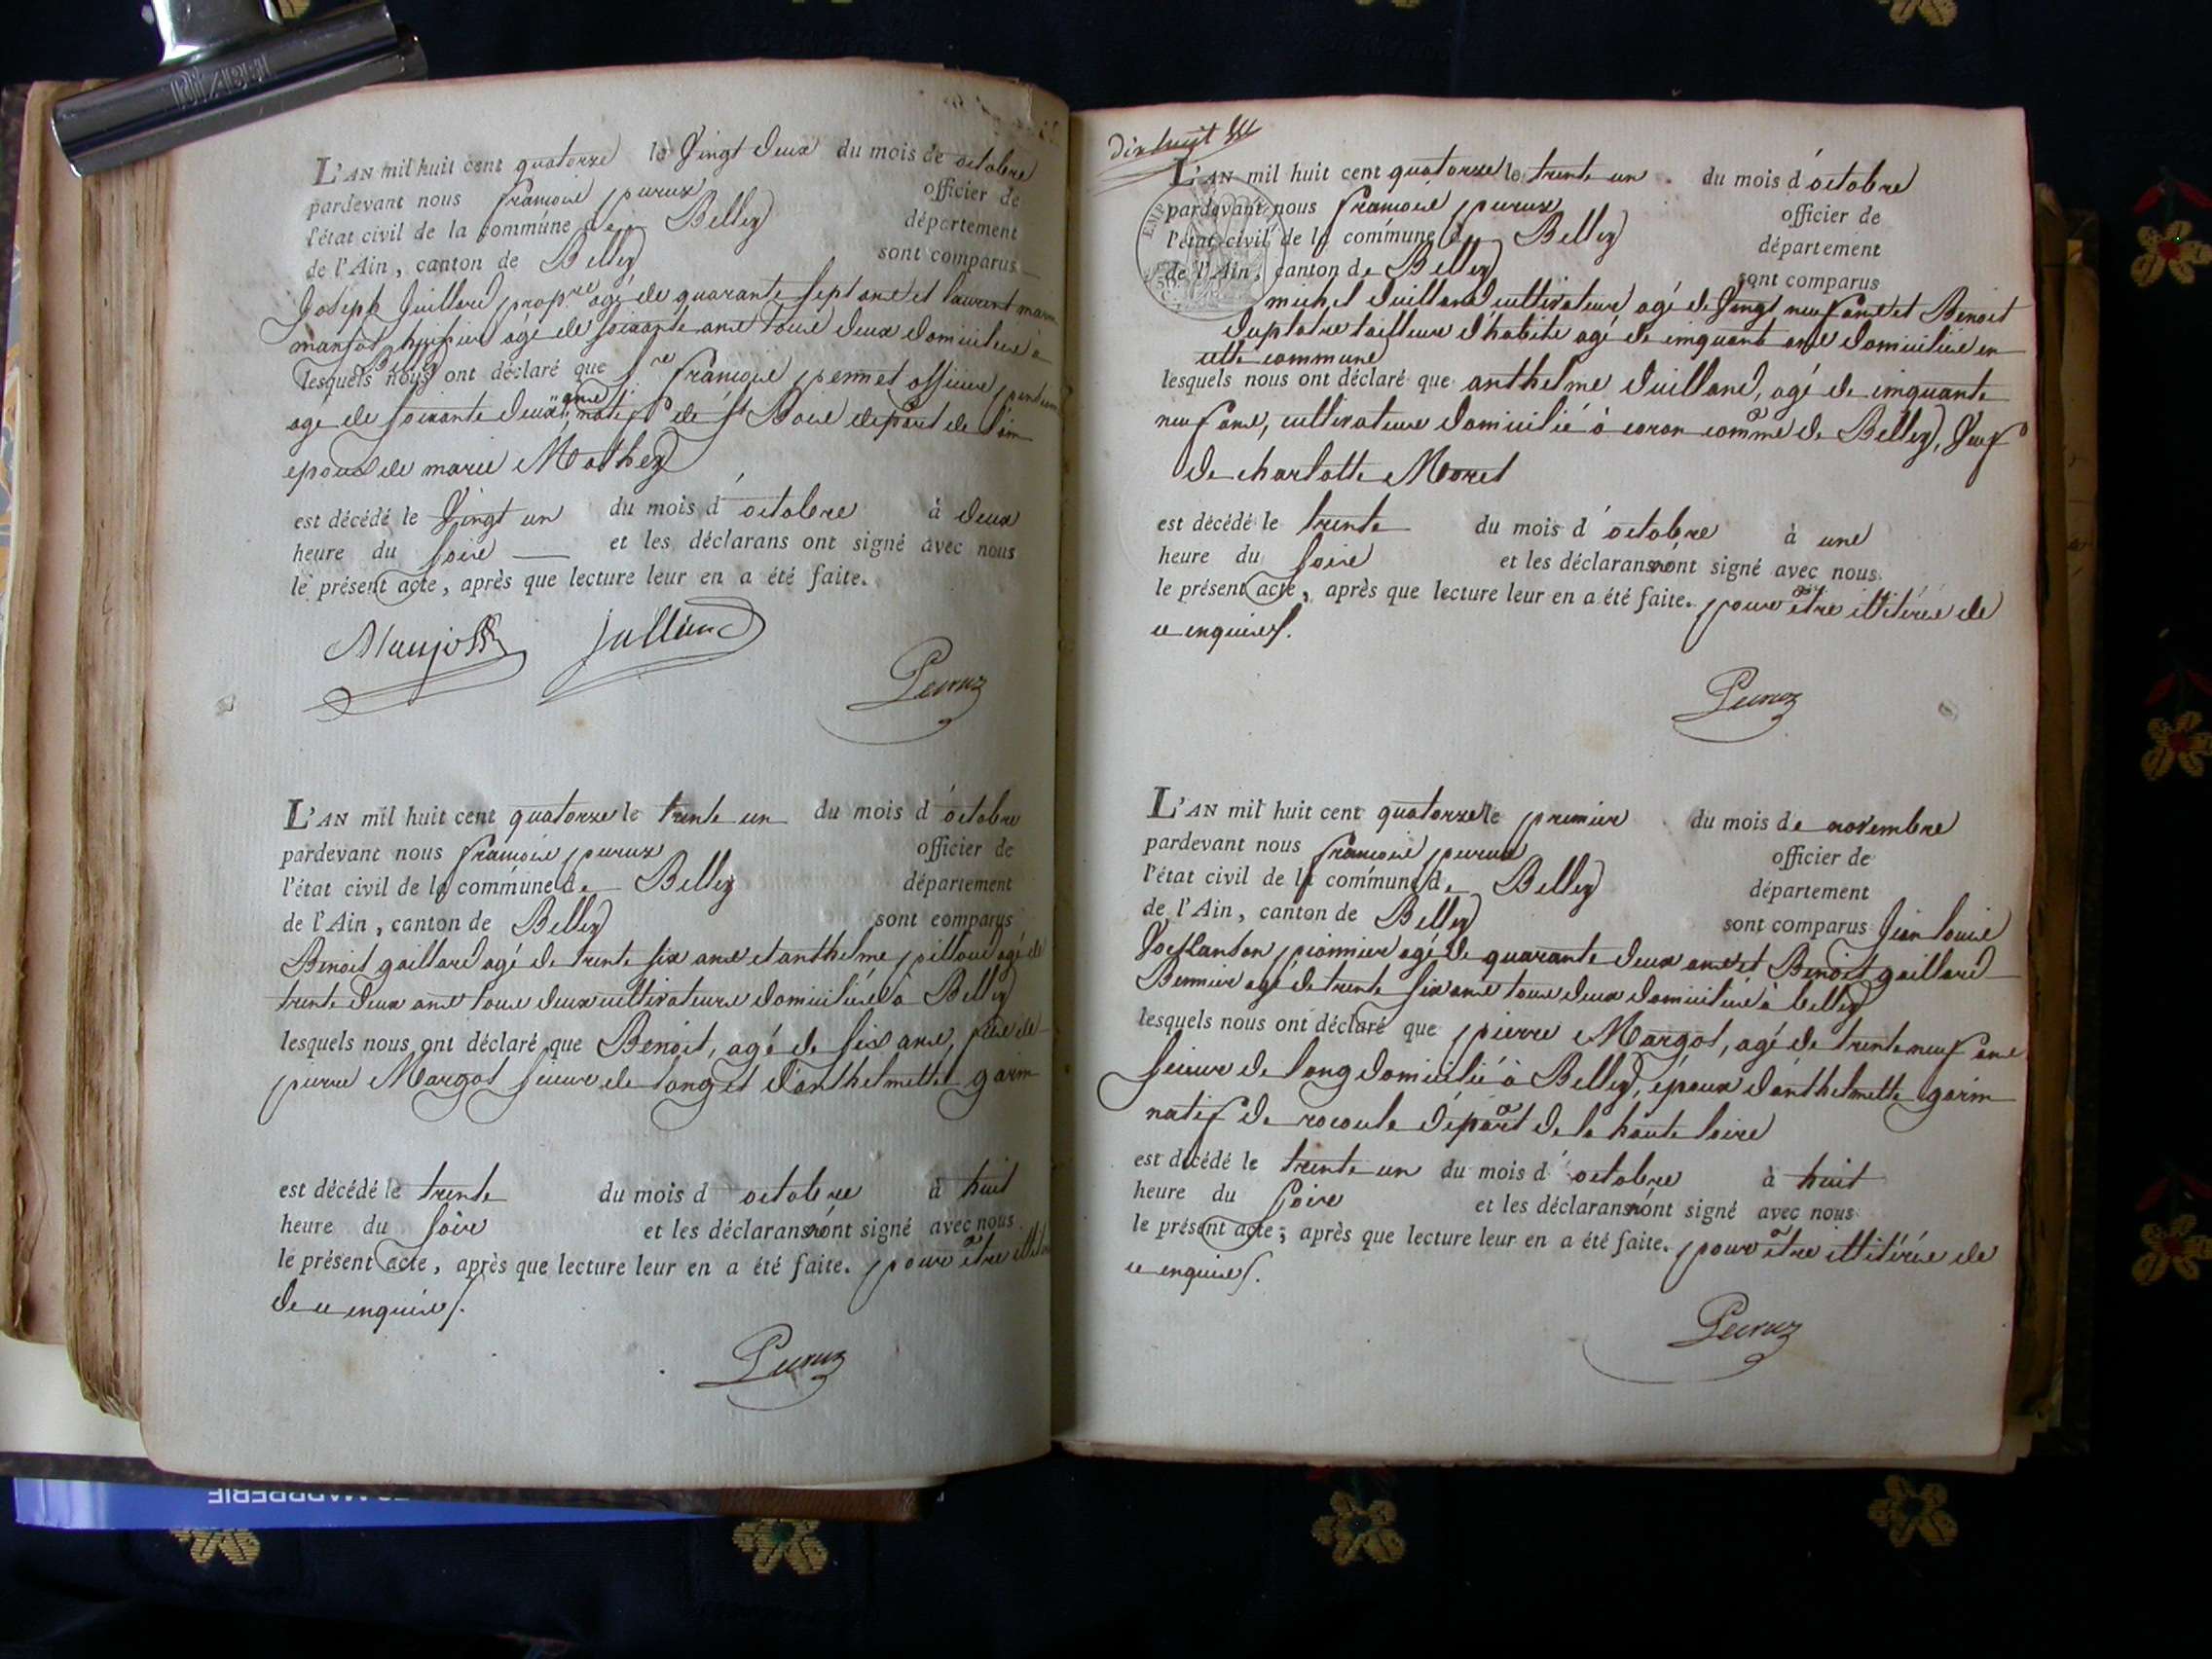 L'AN mil huit cent quatorze le Vingt deux du mois de octobre
pardevant nous françois peruz officier de
l'état civil de la commune de Belley département
de l'Ain, canton de Belley sont comparus
Joseph Juillard prop.re agé de quarante sept ans et laurent
manjot huissier agé de soixante ans tous deux domiciliés à
Belley
lesquels nous ont déclaré que s.r françois pernet officier
age de soixante deux ans natif de st Bois depart de l'ain
epoux de marie Mathey
est décédé le Vingt un du mois d'octobre à deux
heure du soir et les déclarans ont signé avec nous
le présent acte, après que lecture leur en a été faite.
Juilland
Peruz
L'AN mil huit cent quatorze le trente un du mois d'octobre
pardevant nous françois peruz officier de
l'état civil de la commune de Belley département
de l'Ain, canton de Belley sont comparus
Benoit gaillard agé de trente six ans et anthelme pilloud agé de
trente deux ans tous deux cultivateurs domiciliés à Belley
lesquels nous ont déclaré que Benoit, agé de six ans, fils de
pierre Margot scieur de long et d'anthelmette garin
est décédé le trente du mois d octobre à huit
heure du soir et les déclarans n'ont signé avec nous
le présent acte, après que lecture leur en a été faite. pour être
de ce enquis.
Peruz
dix huit
L'AN mil huit cent quatorze le trente un du mois d'octobre
pardevant nous françois peruz officier de
l'état civil de la commune de Belley département
de l'Ain, canton de Belley sont comparus
michel duilland cultivateur agé de Vingt neuf ans et Benoit
duplatre tailleur d'habits agé de cinquante ans domiciliés en
cette commune
lesquels nous ont déclaré que anthelme duilland, agé de cinquante
neuf ans, cultivateur domicilié à coron comme de Belley, Veuf
de charlotte Moret
est décédé le trente du mois d'octobre à une
heure du soir et les déclarans n'ont signé avec nous
le présent acte, après que lecture leur en a été faite. pour être illitérés de
ce enquis.
Peruz
L'AN mil huit cent quatorze le premier du mois de novembre
pardevant nous françois peruz officier de
l'état civil de la commune de Belley département
de l'Ain, canton de Belley sont comparus Jean louis
pionnier agé de quarante deux ans et Benoit gaillard
agé de trente six ans tous deux domiciliés à belley
lesquels nous ont déclaré que pierre Margot, agé de trente neuf ans
scieur de long domicilié à Belley, époux d'anthelmette garin
natif de rocoule départ de la haute loire
est décédé le trente un du mois d'octobre à huit
heure du soir et les déclarans n'ont signé avec nous
le présent acte; après que lecture leur en a été faite. pour être illitérés de
ce enquis.
Peruz